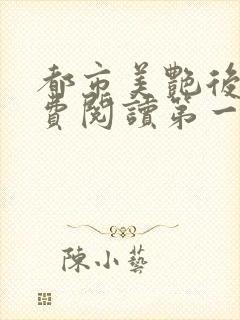 都市美艷後
費閱讀第一
陳小藝